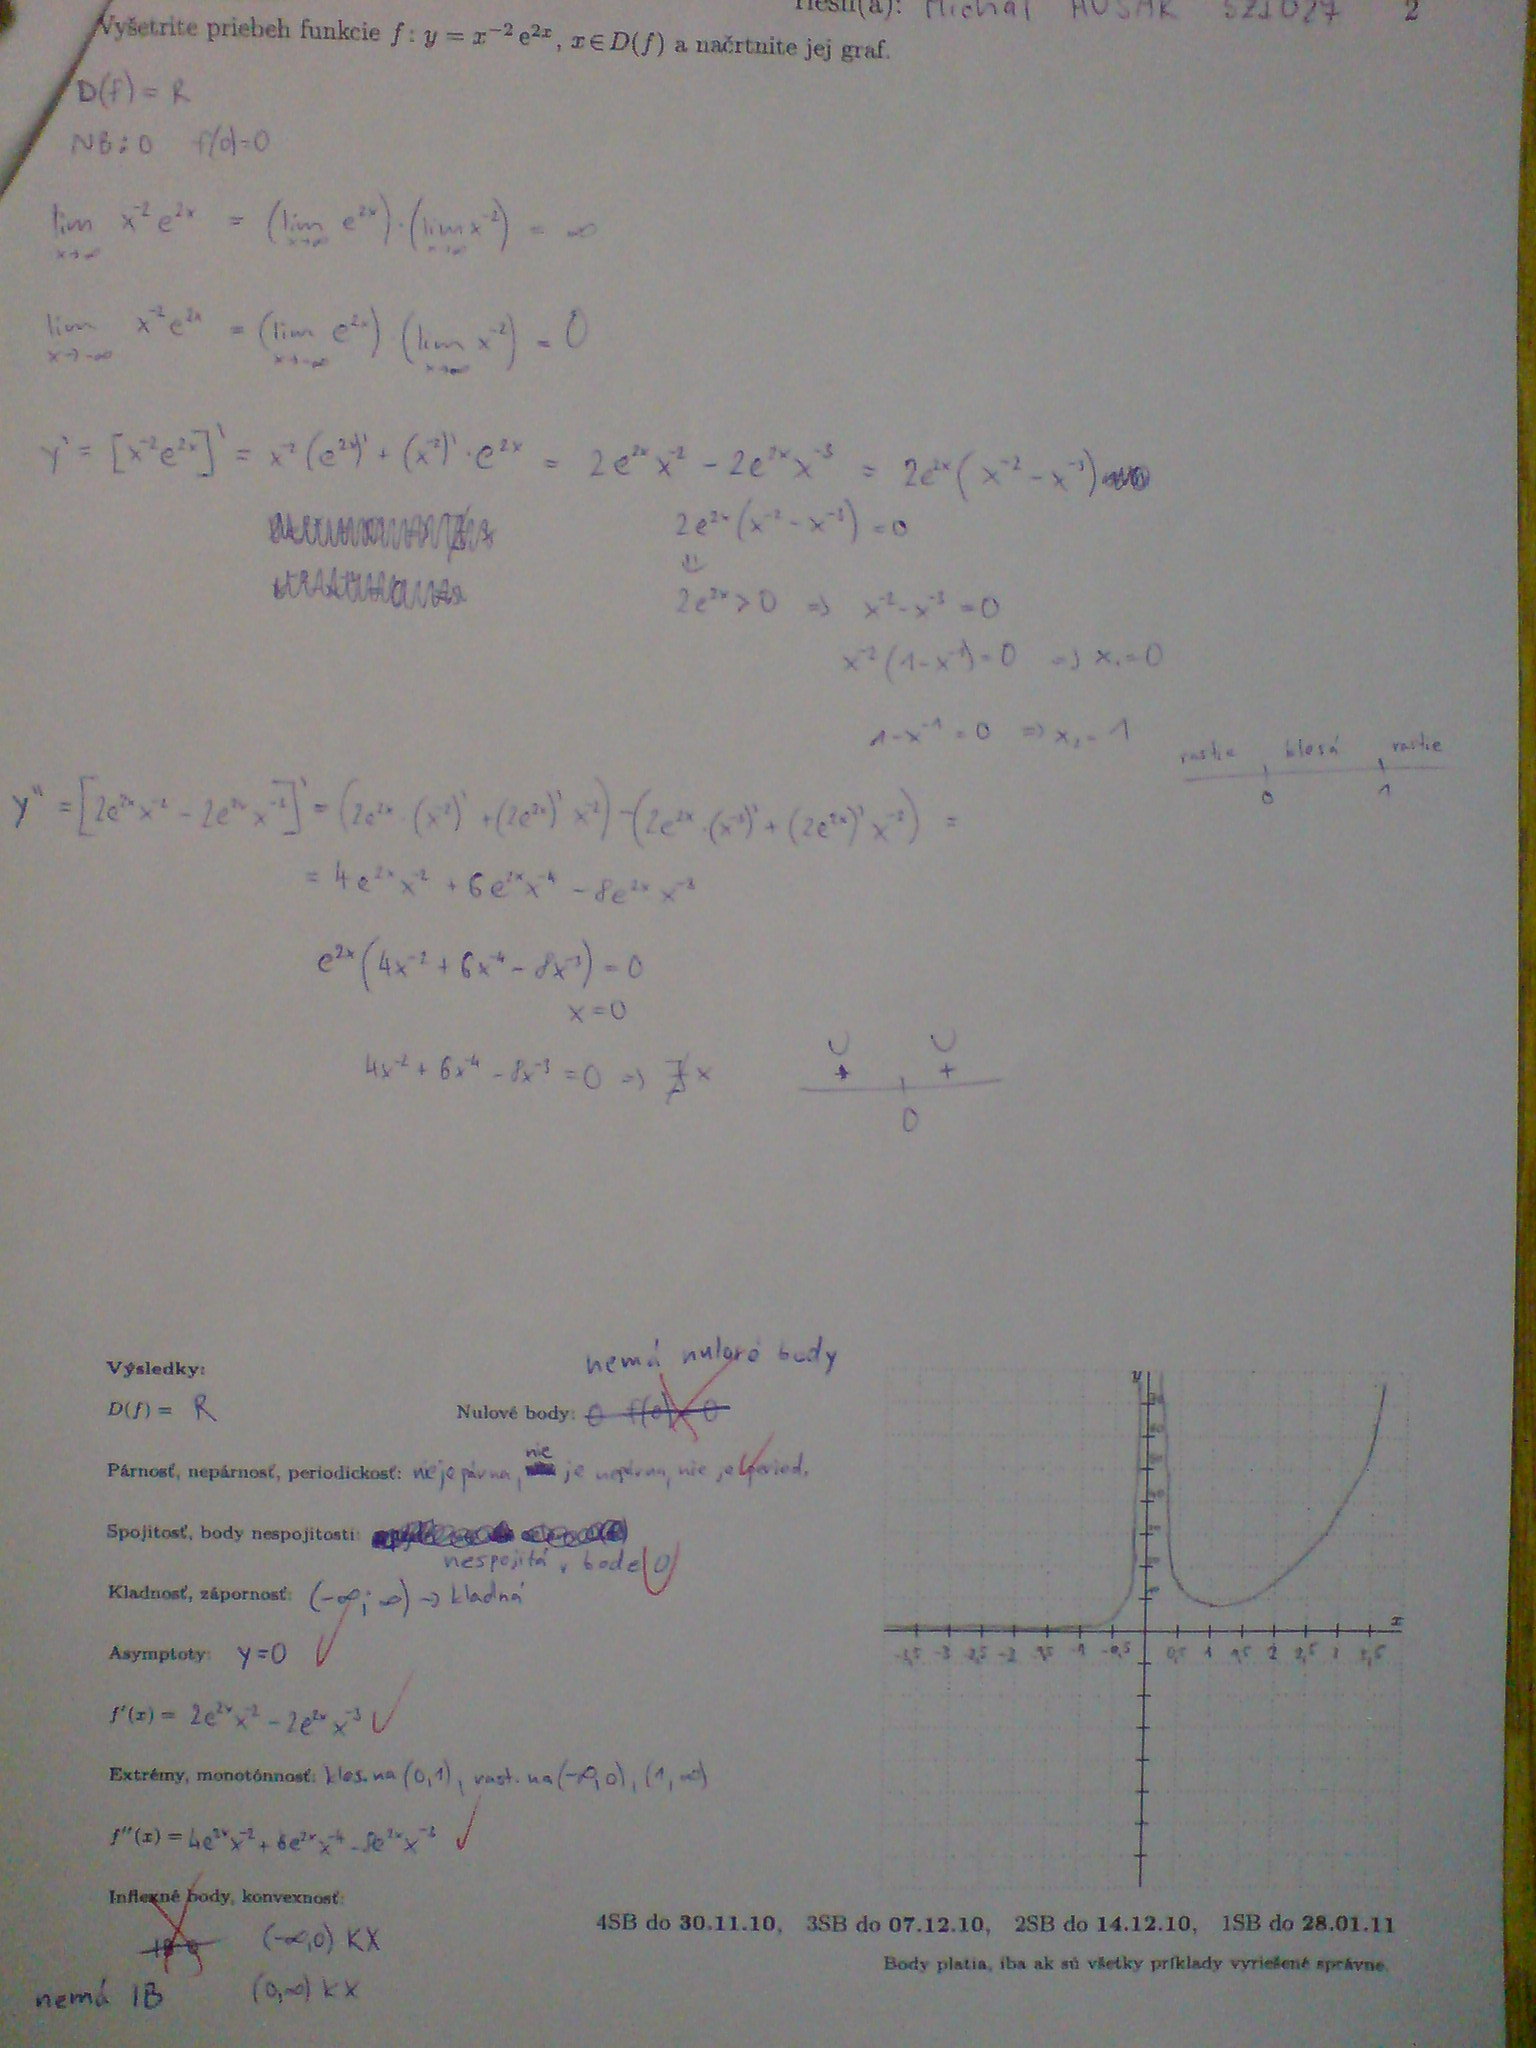 Riešil(a): Michal HUSÁR 521027 2
Vyšetrite priebeh funkcie f: y = x⁻² e²ˣ, x∈D(f) a načrtnite jej graf.
D(f) = R
NB: 0 f(0)=0
lim x→∞ x⁻² e²ˣ = (lim x→∞ e²ˣ)·(lim x→∞ x⁻²) = ∞
lim x→-∞ x⁻² e²ˣ = (lim x→-∞ e²ˣ) (lim x→-∞ x⁻²) = 0
y' = [x⁻²e²ˣ]' = x⁻²(e²ˣ)' + (x⁻²)'·e²ˣ = 2e²ˣx⁻² - 2e²ˣx⁻³ = 2e²ˣ(x⁻² - x⁻³)
2e²ˣ(x⁻² - x⁻³) = 0
2e²ˣ > 0 => x⁻² - x⁻³ = 0
x⁻²(1-x⁻¹) = 0 => x₁ = 0
1-x⁻¹ = 0 => x₂ = 1
rastie klesá rastie
0 1
y'' = [2e²ˣx⁻² - 2e²ˣx⁻³]' = (2e²ˣ·(x⁻²)' + (2e²ˣ)' x⁻²) - (2e²ˣ·(x⁻³)' + (2e²ˣ)' x⁻³) =
= 4e²ˣx⁻² + 6e²ˣx⁻⁴ - 8e²ˣx⁻³
e²ˣ(4x⁻² + 6x⁻⁴ - 8x⁻³) = 0
x = 0
4x⁻² + 6x⁻⁴ - 8x⁻³ = 0 => ∄ x
∪ ∪
+ +
0
Výsledky:
nemá nulové body
D(f) = R Nulové body: 0 f(0) = 0
Párnosť, nepárnosť, periodickosť: nie je párna, nie je nepárna, nie je period.
Spojitosť, body nespojitosti:
nespojitá v bode (0)
Kladnosť, zápornosť: (-∞; ∞) → kladná
Asymptoty: y=0
f'(x) = 2e²ˣx⁻² - 2e²ˣx⁻³
Extrémy, monotónnosť: kles. na (0,1), rast. na (-∞,0), (1,∞)
f''(x) = 4e²ˣx⁻² + 6e²ˣx⁻⁴ - 8e²ˣx⁻³
Inflexné body, konvexnosť:
(-∞,0) KX
nemá IB (0,∞) KX
y
x
-3,5 -3 -2,5 -2 -1,5 -1 -0,5 0,5 1 1,5 2 2,5 3 3,5
4SB do 30.11.10, 3SB do 07.12.10, 2SB do 14.12.10, 1SB do 28.01.11
Body platia, iba ak sú všetky príklady vyriešené správne.